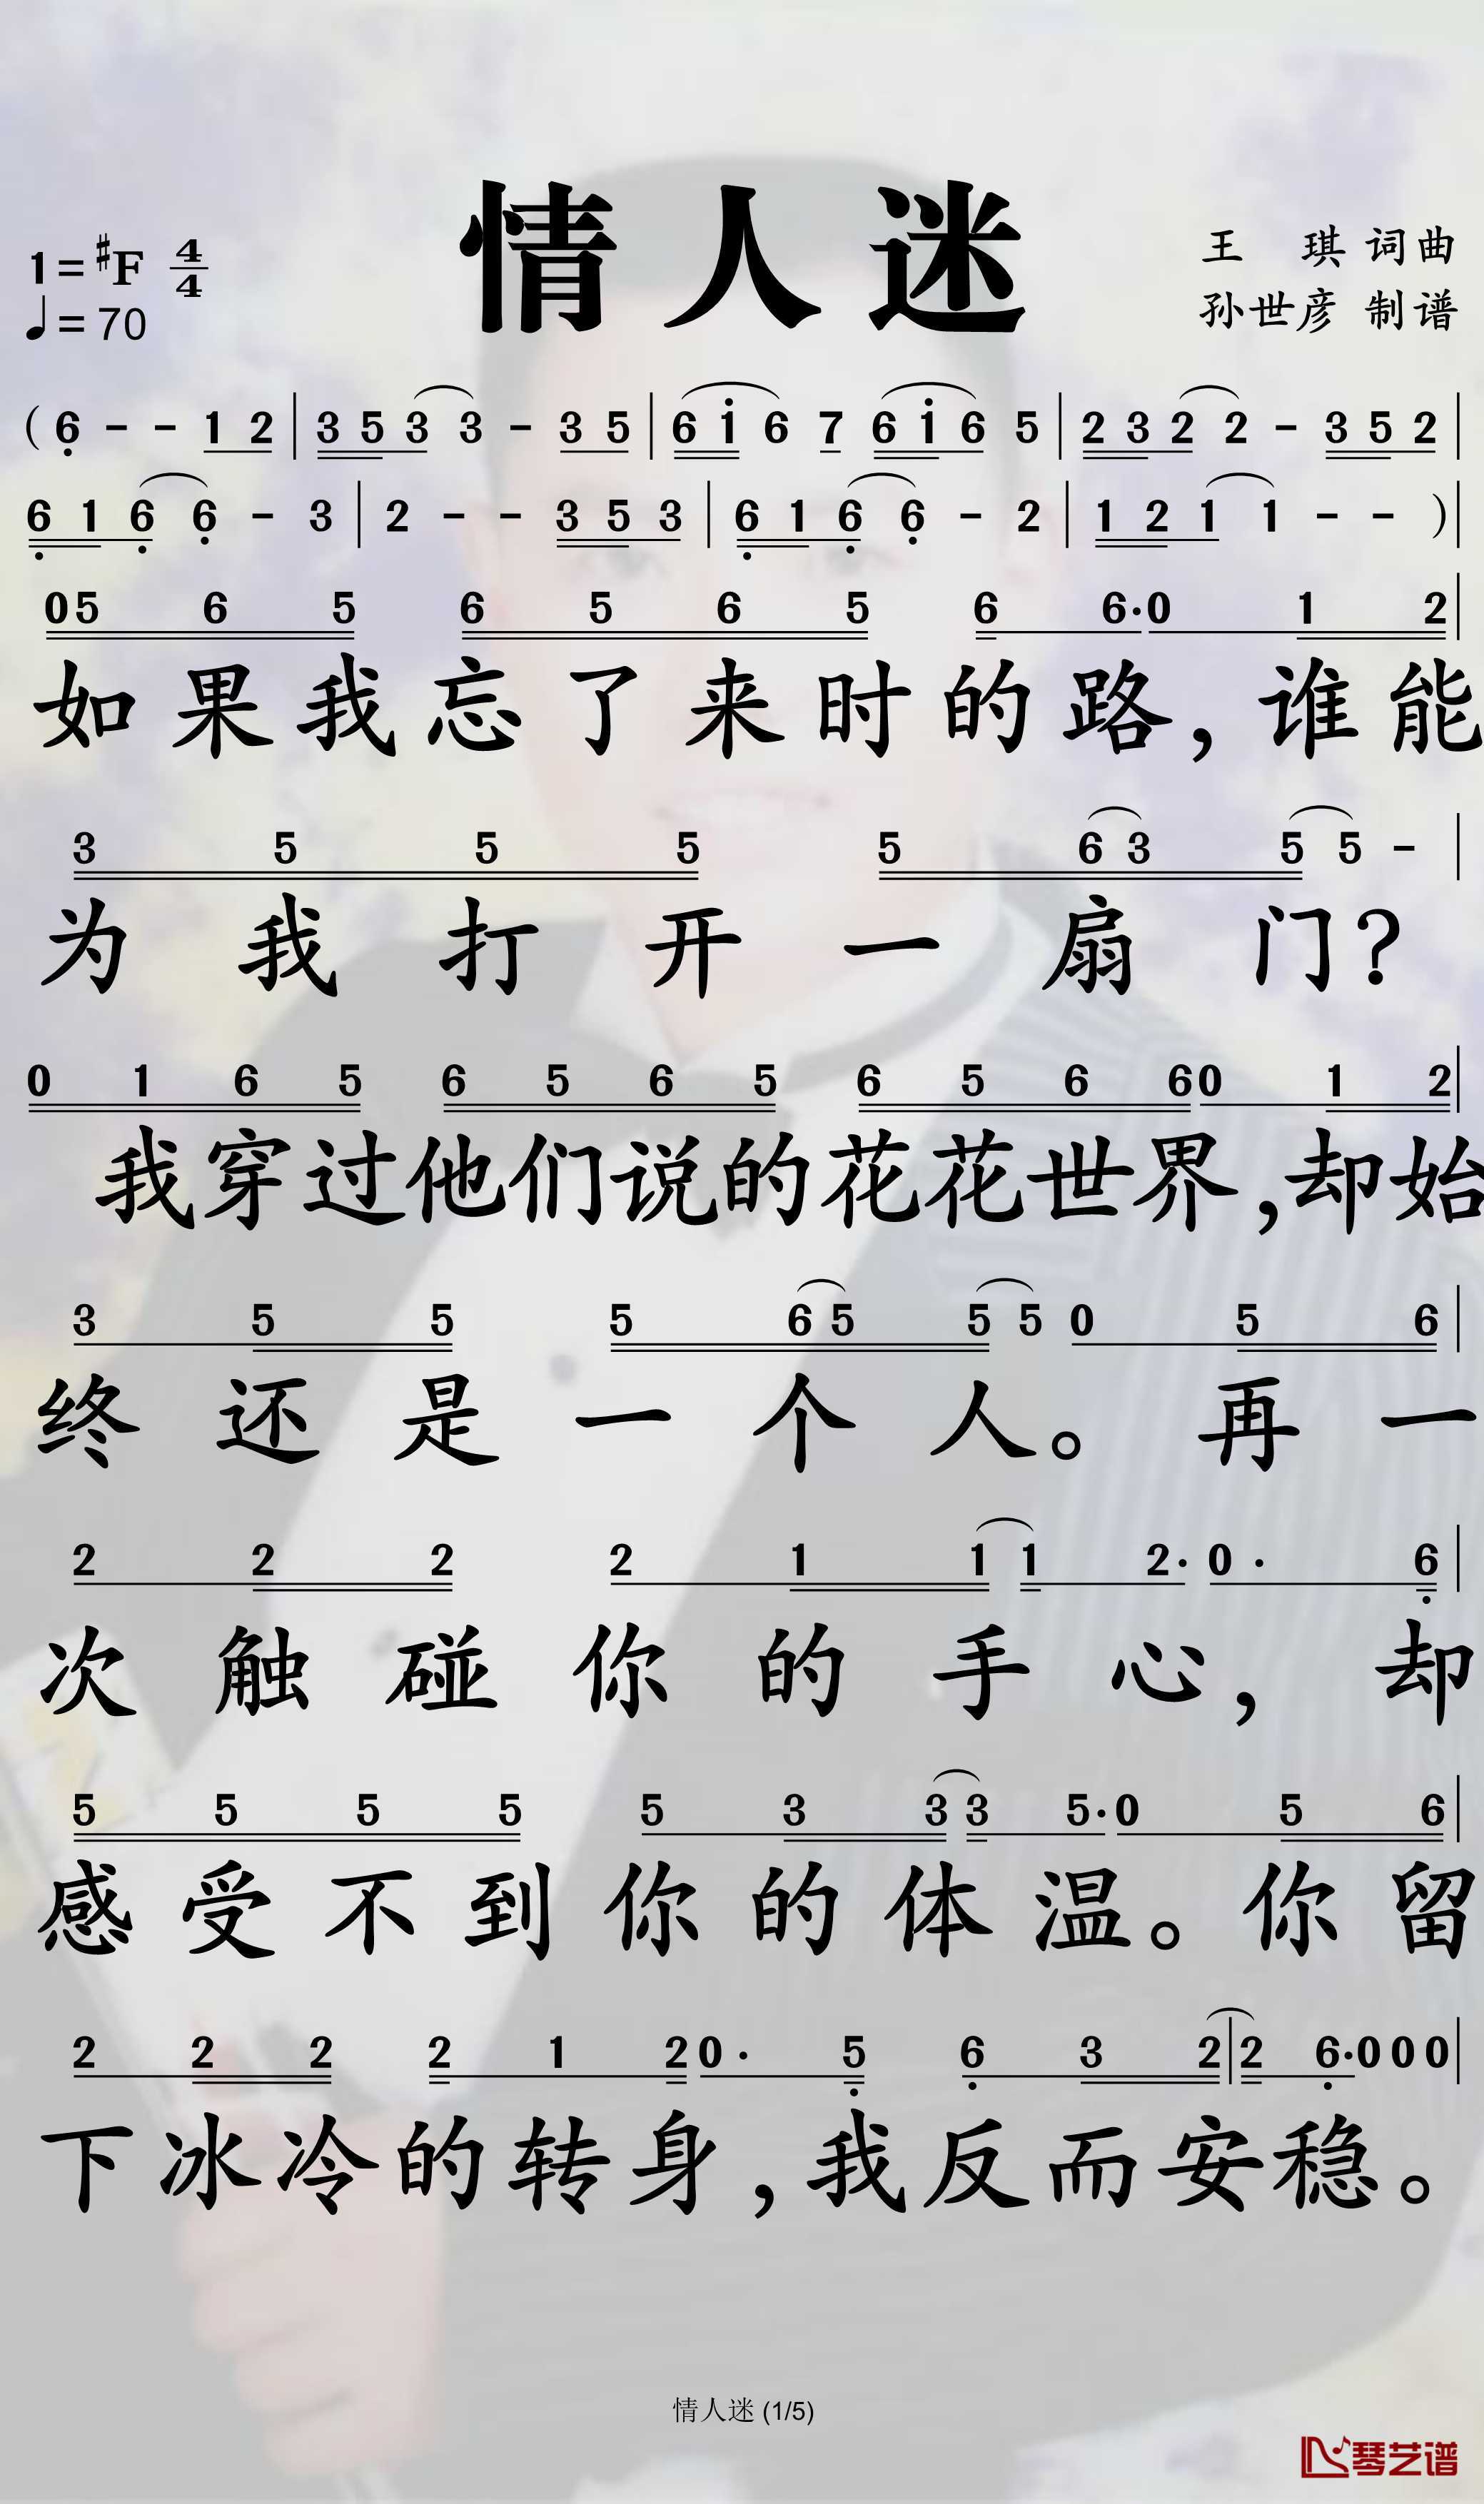 情人迷
1=#F 4/4
♩=70
王 琪 词曲
孙世彦 制谱
( 6 - - 1 2 | 3 5 3 3 - 3 5 | 6 1 6 7 6 1 6 5 | 2 3 2 2 - 3 5 2 |
6 1 6 6 - 3 | 2 - - 3 5 3 | 6 1 6 6 - 2 | 1 2 1 1 - - ) |
0 5 6 5 6 5 6 5 6 6· 0 1 2 |
如果我忘了来时的路，谁能
3 5 5 5 5 6 3 5 5 - |
为我打开一扇门？
0 1 6 5 6 5 6 5 6 5 6 6 0 1 2 |
我穿过他们说的花花世界，却始
3 5 5 5 6 5 5 5 0 5 6 |
终还是一个人。再一
2 2 2 2 1 1 1 2· 0· 6 |
次触碰你的手心，却
5 5 5 5 5 3 3 3 5· 0 5 6 |
感受不到你的体温。你留
2 2 2 2 1 2 0· 5 6 3 2 | 2 6· 0 0 0 |
下冰冷的转身，我反而安稳。
情人迷 (1/5)
琴艺谱